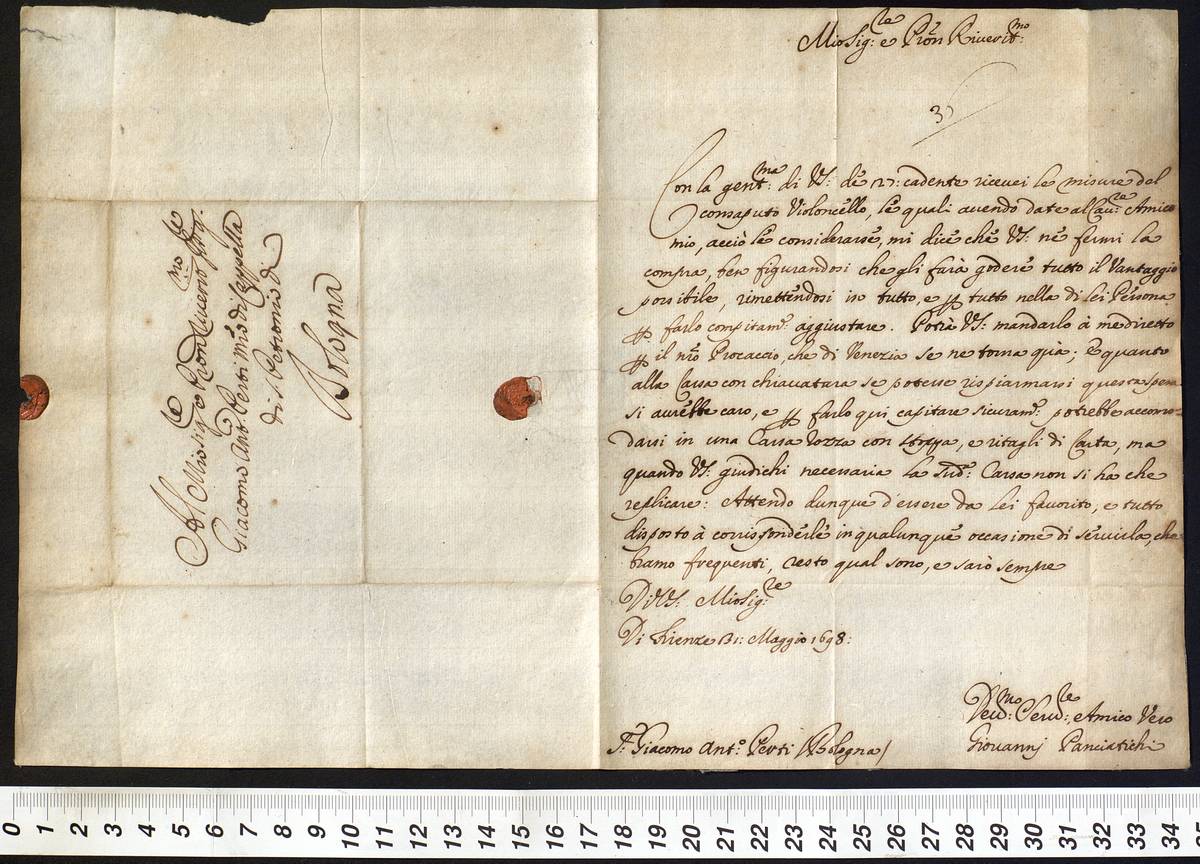 Mio Sig:re e Pron Riverit:mo
3
Con la gent:ma di VS: de 27: cadente ricevei le misure del
consaputo Violoncello, le quali avendo date al Cav:re Amico
mio, acciò le considerasse, mi dice che VS: ne fermi la
compra, ben figurandosi che gli farà godere tutto il Vantaggio
possibile, rimettendosi in tutto, e p tutto nella di lei Persona
p farlo compitam: aggiustare. Potrà VS: mandarlo à me diretto
p il nro Procaccio, che di Venezia se ne torna quà; e quanto
alla Cassa con chiavatura se potesse rispiarmarsi questa spesa
si aurebbe caro, e p farlo qui capitare sicuram: potrebbe accomo-
darsi in una Cassa rozza con stoppa, e ritagli di Carta, ma
quando VS: giudichi necessaria la Sud: Cassa non si ha che
replicare: Attendo dunque d'essere da Lei favorito, e tutto
disposto à corrisponderle in qualunque occasione di servirla, che
bramo frequenti, resto qual sono, e sarò sempre
Di VS: Mio Sig:re
Di Firenze 31: Maggio 1698:
Dev:mo Serv:re, e Amico Vero
Giovannj Panciatichi
S: Giacomo Ant:o Perti (Bologna)
Al Mio Sig:re e Pron Riverito
Giacomo Ant:o Perti Mro di Cappella
di S. Petronio di
Bologna
0 1 2 3 4 5 6 7 8 9 10 11 12 13 14 15 16 17 18 19 20 21 22 23 24 25 26 27 28 29 30 31 32 33 34